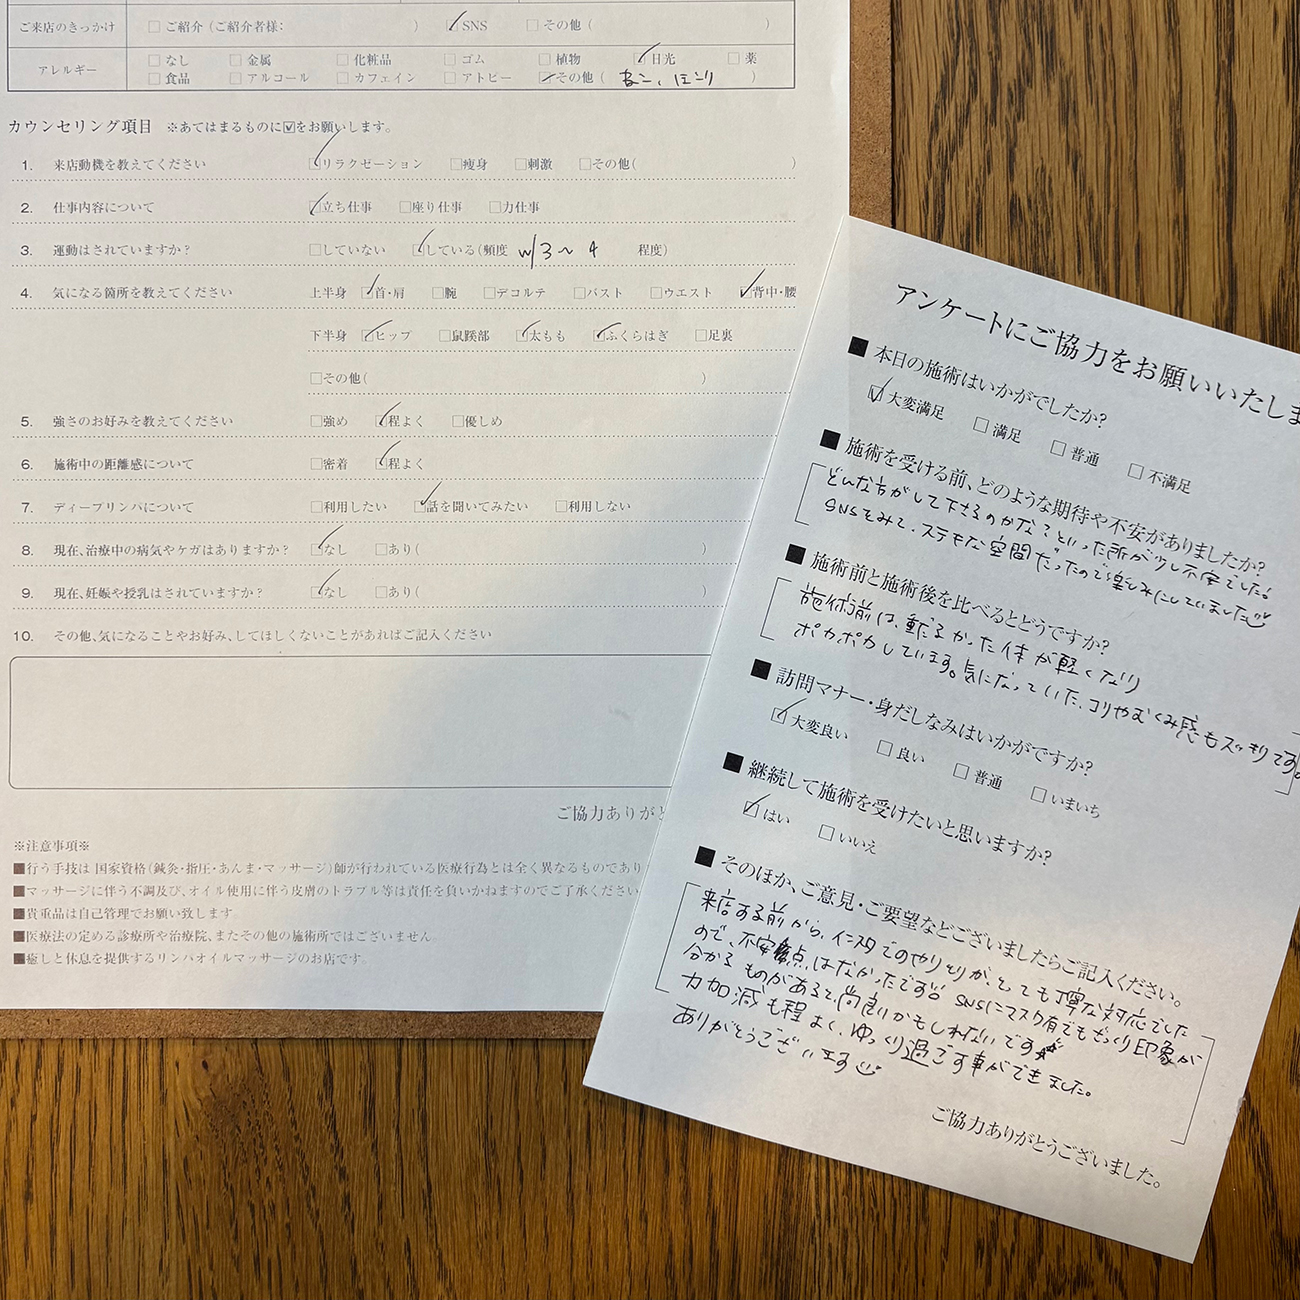 ご来店のきっかけ □ご紹介（ご紹介者様: ） ☑SNS □その他（ ）
アレルギー □なし □金属 □化粧品 □ゴム □植物 ☑日光 □薬
□食品 □アルコール □カフェイン □アトピー ☑その他（ ねこ、ほこり ）
カウンセリング項目 ※あてはまるものに☑をお願いします。
1. 来店動機を教えてください ☑リラクゼーション □痩身 □刺激 □その他( )
2. 仕事内容について ☑立ち仕事 □座り仕事 □力仕事
3. 運動はされていますか？ □していない ☑している(頻度 w/3～4 程度)
4. 気になる箇所を教えてください 上半身 ☑首・肩 □腕 □デコルテ □バスト □ウエスト ☑背中・腰
下半身 ☑ヒップ □鼠蹊部 ☑太もも ☑ふくらはぎ □足裏
□その他( )
5. 強さのお好みを教えてください □強め ☑程よく □優しめ
6. 施術中の距離感について □密着 ☑程よく
7. ディープリンパについて □利用したい ☑話を聞いてみたい □利用しない
8. 現在、治療中の病気やケガはありますか？ ☑なし □あり( )
9. 現在、妊娠や授乳はされていますか？ ☑なし □あり( )
10. その他、気になることやお好み、してほしくないことがあればご記入ください
ご協力ありがと
※注意事項※
■行う手技は 国家資格（鍼灸・指圧・あんま・マッサージ）師が行われている医療行為とは全く異なるものであり
■マッサージに伴う不調及び、オイル使用に伴う皮膚のトラブル等は責任を負いかねますのでご了承ください
■貴重品は自己管理でお願い致します。
■医療法の定める診療所や治療院、またその他の施術所ではございません。
■癒しと休息を提供するリンパオイルマッサージのお店です。
アンケートにご協力をお願いいたしま
■本日の施術はいかがでしたか？
☑大変満足 □満足 □普通 □不満足
■施術を受ける前、どのような期待や不安がありましたか？
どんな方がして下さるのかな？といった所が少し不安でした!
SNSをみて、ステキな空間だったので楽しみにしていました
■施術前と施術後を比べるとどうですか？
施術前は、重だるかった体が軽くなり
ポカポカしています。気になっていた、コリやむくみ感もスッキリです。
■訪問マナー・身だしなみはいかがですか？
☑大変良い □良い □普通 □いまいち
■継続して施術を受けたいと思いますか？
☑はい □いいえ
■そのほか、ご意見・ご要望などございましたらご記入ください。
来店する前から、インスタでのやりとりが、とても丁寧な対応でした
ので、不安点はなかったです!! SNSにマスク有でもざっくり印象が
分かるものがあると、尚良いかもしれないです
力加減も程よく、ゆっくり過ごす事ができました。
ありがとうございます
ご協力ありがとうございました。